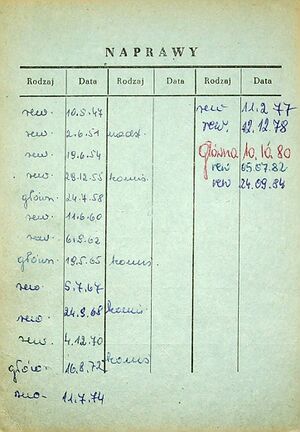 NAPRAWY
Rodzaj Data Rodzaj Data Rodzaj Data
rew. 10.5.47 rew 11.2.77
rew. 2.6.51 nadz. rew. 12.12.78
rew. 19.6.54 główna 10.10.80
rew. 29.12.55 komis. rew 05.07.82
główn. 24.7.58 rew 24.09.84
rew. 11.6.60
rew. 6.9.62
główn. 19.5.65 komis.
rew. 5.7.67
rew. 24.9.68 komis.
rew. 4.12.70
główn. 16.8.72 komis
rew. 11.7.74